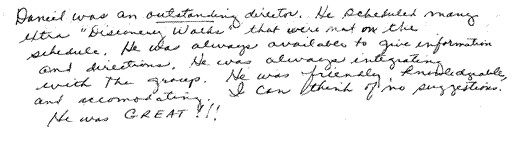 Daniel was an outstanding director. He scheduled many
extra "Discovery Walks" that were not on the
schedule. He was always available to give information
and directions. He was always integrating
with the group. He was friendly, knowledgeable,
and accomodating. I can think of no suggestions.
He was GREAT!!!